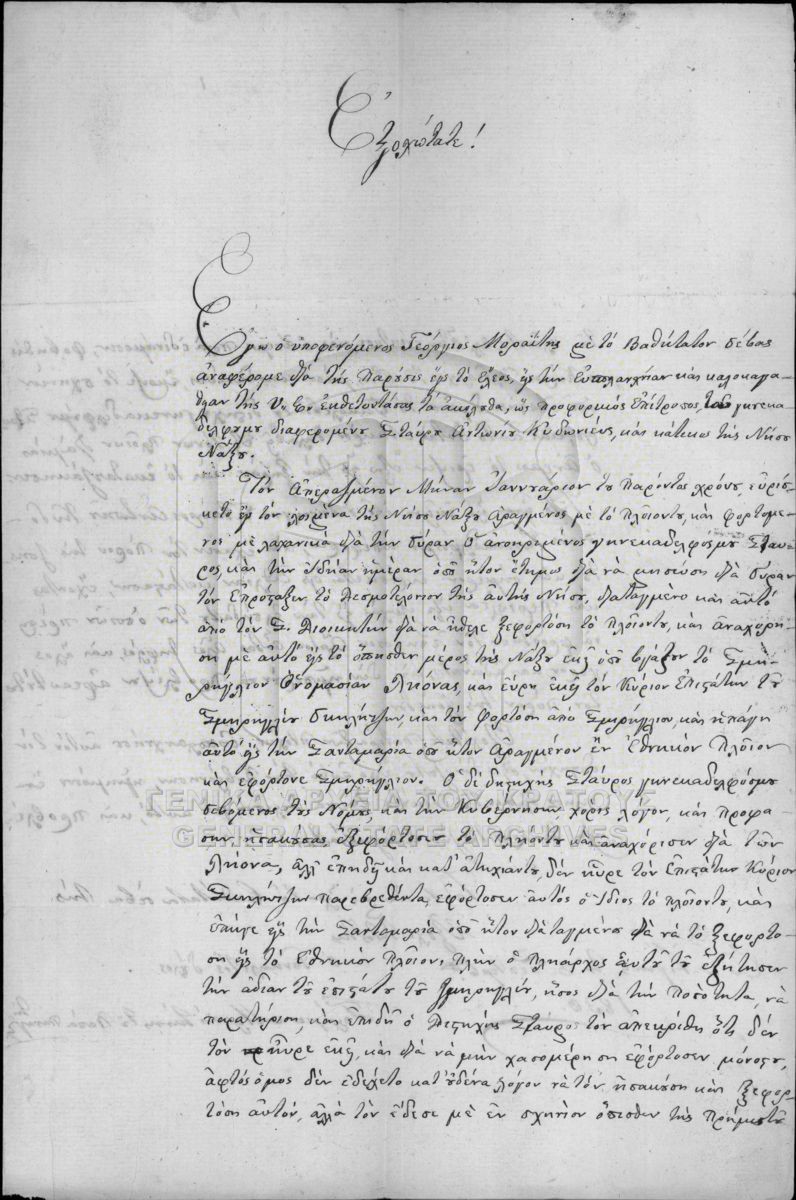 Ἐξοχώτατε!
Ἐγω ὁ ὑποφενόμενος Γεόργιος Μοραΐτης μὲ τὸ Βαθύτατον σέβας
ἀναφέρομε διὰ τῆς Παρούσις εἰς τὸ ἔλεος, εἰς τὴν Εὐσπλαχνίαν καὶ καλοκαγα-
θίαν τῆς ἐκθετουντάσας τὰ ἀκόλουθα, ὡς προφορικὸς Ἐπίτροπος, τοῦ γυνεκα-
δελφοῦμου διαφερομένου Σταύρου Ἀντωνίου Κυδωνιέως, καὶ κάτικου τῆς Νήσου
Νάξου.
Τὸν Ἀπερασμένον Μῆναν Ἰαννουάριον τοῦ παρόντος χρόνου, εὑρίσ-
κετο εἰς τὸν λιμένα τῆς Νήσου Νάξου ἀραγμένος μὲ τὸ πλοῖοντου, καὶ φορτομέ-
νος μὲ λαχανικὰ διὰ τὴν Σύραν ὁ ἀνοιρημένος γυνεκαδελφόςμου Σταυ-
ρος, καὶ τὴν ἰδίαν ἡμέραν ὁποῦ ἦτον ἔτημος διὰ νὰ κινήσῃ διὰ Συραν
τὸν ἐπρόσταξεν τὸ Δεσμοτέλονιον τῆς αὐτῆς Νήσου, διαταγμένο καὶ αὐτὸ
ἀπὸ τὸν Διοικητὴν διὰ νὰ ἤθελε ξεφορτόσῃ τὸ πλοῖοντου, καὶ ἀναχορή-
σῃ μὲ αὐτὸ εἰς τὸ ὄπησθεν μέρος τῆς Νάξου ἐκεῖ ὁποῦ βγάζουν τὸ Σμη-
ρήγλιον Ὀνομασίαν Λιόνας, καὶ εὕρη ἐκεῖ τὸν Κύριον Ἐπιστάτην τοῦ
Σμηρηγλίου καὶ τὸν φορτόσῃ ἀπὸ Σμηρήγλιον, καὶ ὑπάγῃ
αὐτὸ εἰς τὴν Σανταμαρία ὁποῦ ἦτον ἀραγμένον ἓν Ἐθνικὸν Πλοῖον
καὶ ἐφόρτονε Σμηρήγλιον. Ὁ δὲ δηστηχὴς Σταῦρος γυνεκαδελφόςμου
σεβόμενος τοὺς Νόμους, καὶ τὴν Κυβέρνησιν, χορὶς λόγον, καὶ προφα-
σιν ἠσακουσας ἐξεφόρτοσεν τὸ πληοντου καὶ ἀναχόρισεν διὰ τὸν
Λιονα, ἀλλ' ἐπηδὴ καὶ κατ' ἀτηχίαντου, δὲν ηὗρε τὸν Ἐπιστάτην Κύριον
παρεβρεθέντα, ἐφόρτοσεν αὐτὸς ὁ ἴδιος τὸ πλοῖοντου, καὶ
ἐπῆγε εἰς τὴν Σανταμαρία ὁποῦ ἦτον διαταγμένος διὰ νὰ τὸ ξεφορτο-
σῃ εἰς τὸ Ἐθνικὸν Πλοῖον, πλὴν ὁ πλοίαρχος αὐτοῦ τοῦ ἐζήτησεν
τὴν ἄδιαν τοῦ ἐπιστάτου τοῦ Σμηρηγλίου, ἴσος διὰ τὴν ποσότητα, νὰ
παρατηρίσῃ, καὶ ἐπιδὴ ὁ Δηστηχὴς Σταῦρος τὸν ἀπεκρίθη ὅτι δὲν
τὸν ηὗρε ἐκεῖ, καὶ διὰ νὰ μὴν χασομερήσῃ ἐφόρτοσεν μόνοςτου,
ἀφτὸς ὅμος δὲν ἐδέχετο κατ' οὐδένα λόγον νὰ τὸν ἠσακούσῃ καὶ ξεφορ-
τόσῃ αὐτόν, ἀλλὰ τὸν ἔδεσε μὲ ἓν σχηνίον ὄπισθεν τῆς πρήμνης
ΓΕΝΙΚΑ ΑΡΧΕΙΑ ΤΟΥ ΚΡΑΤΟΥΣ
GENERAL STATE ARCHIVES